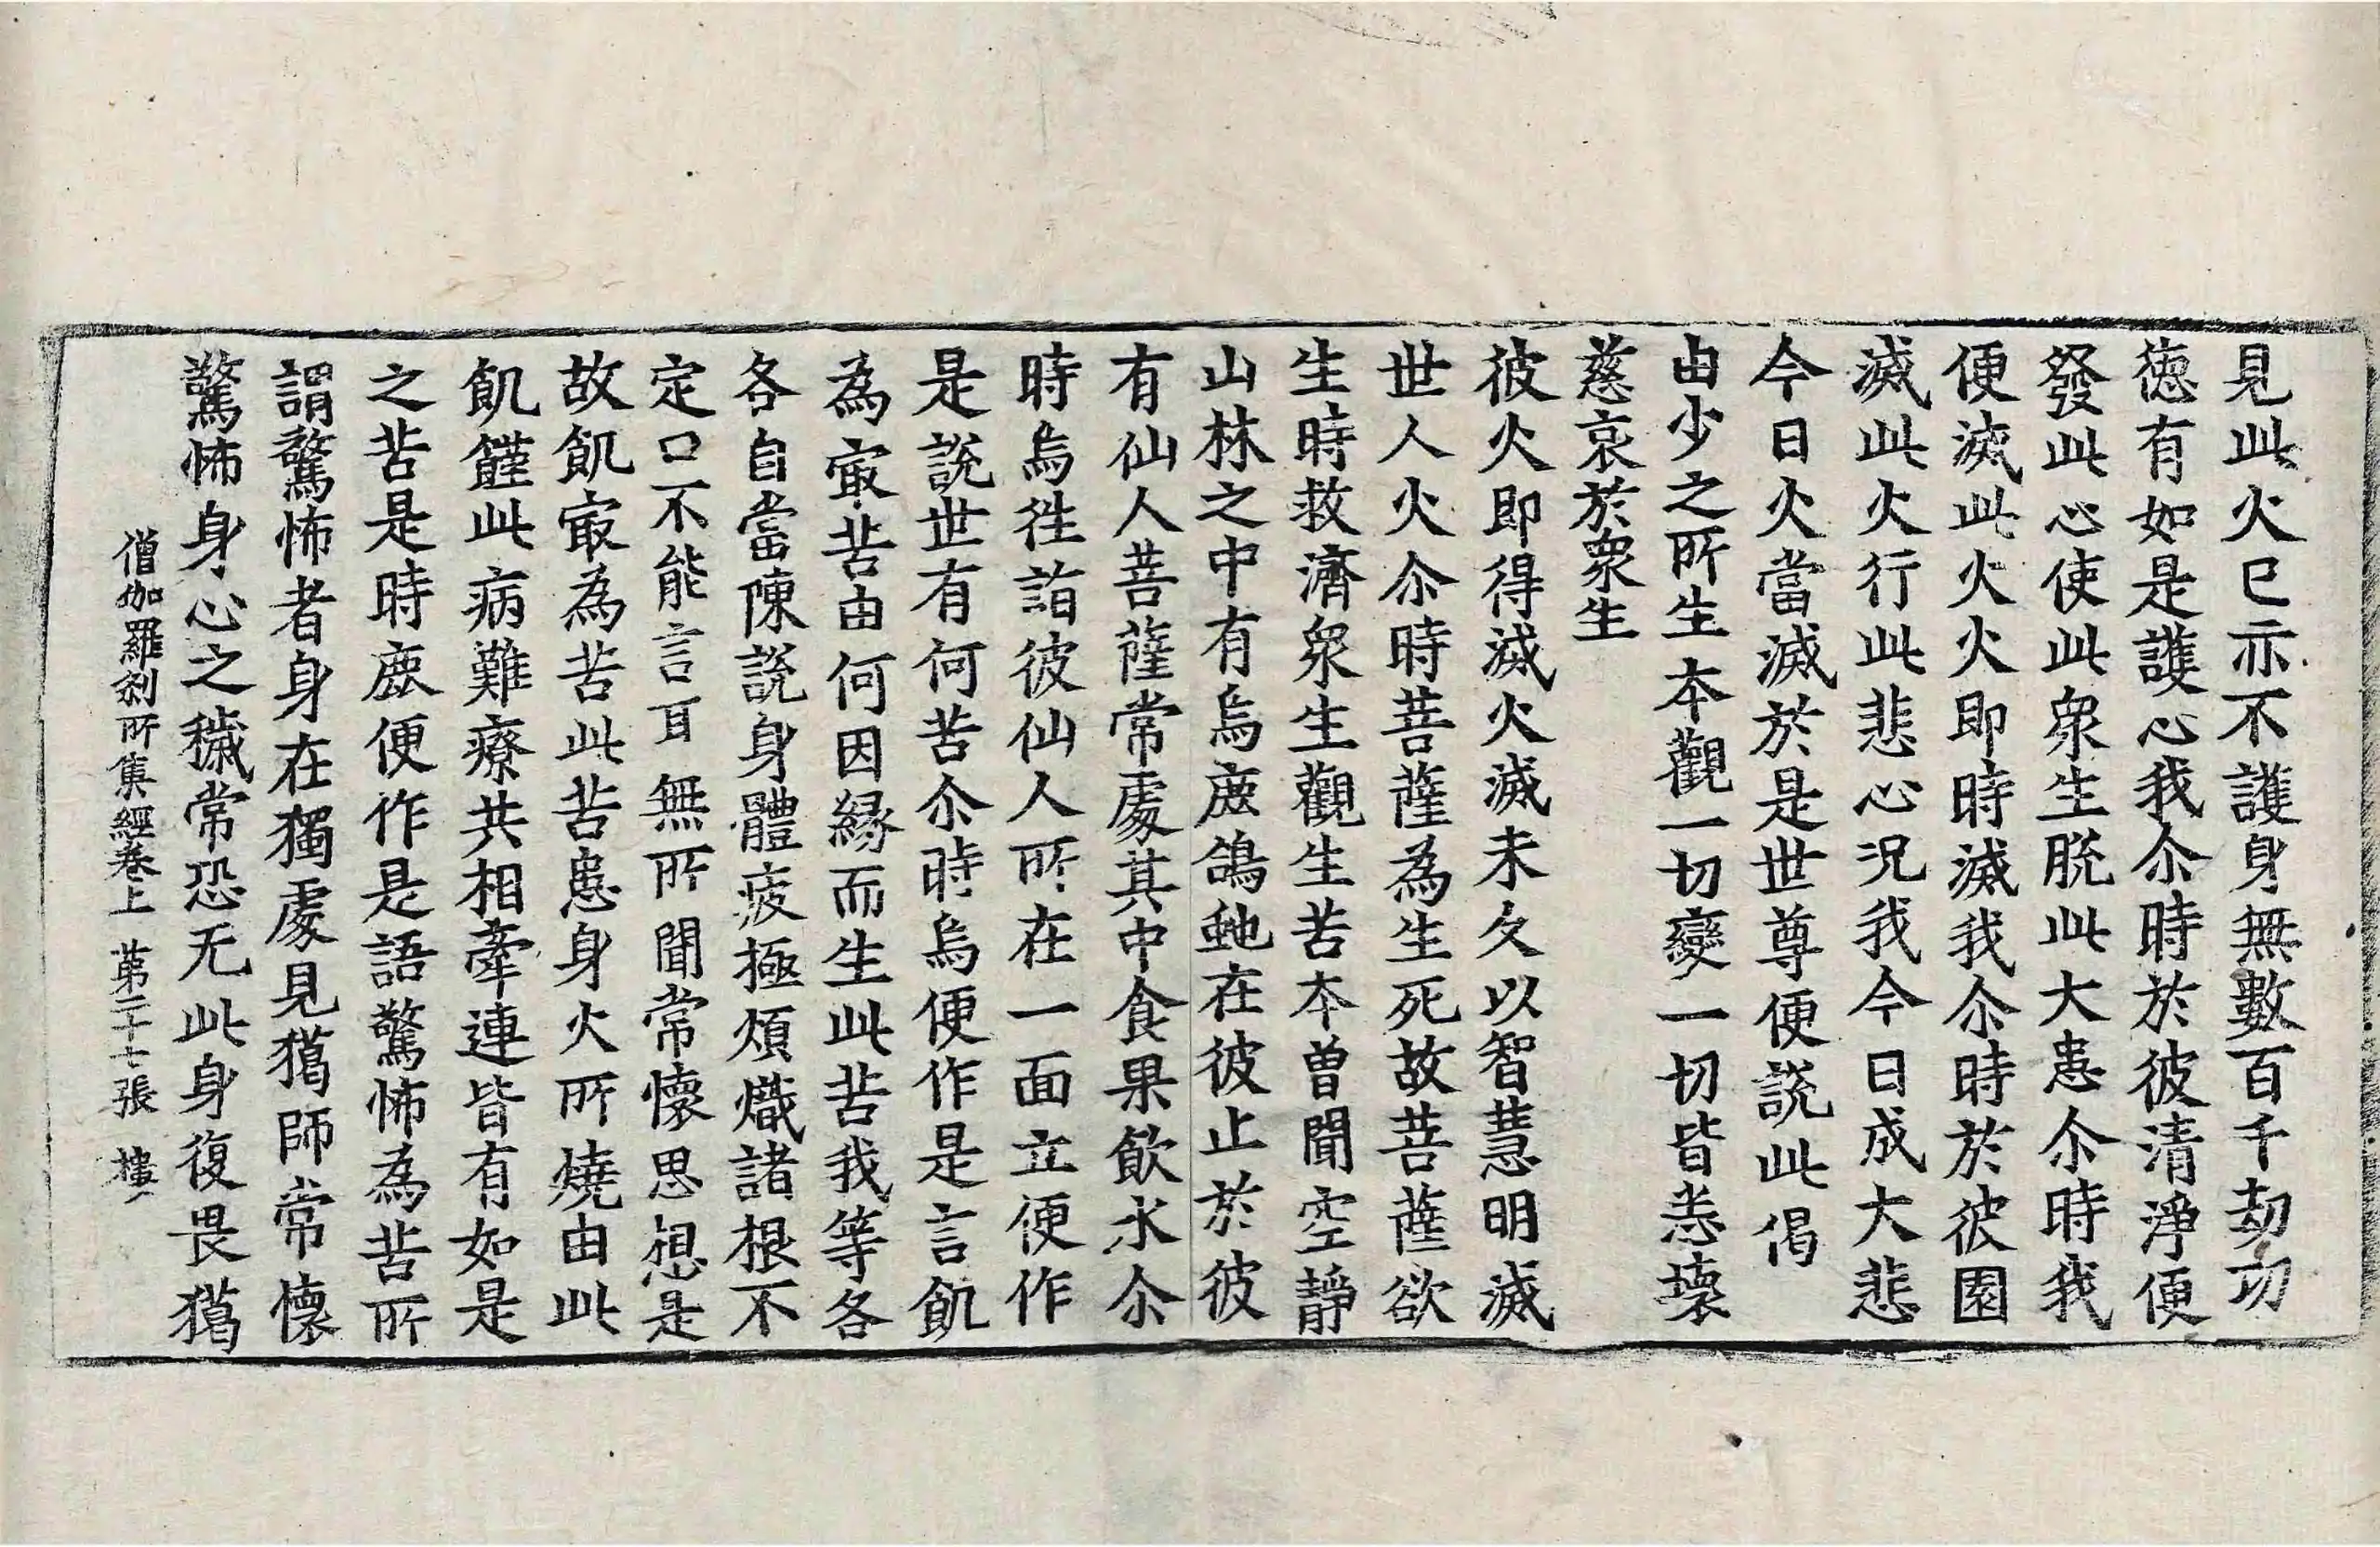 見此火已示不護身無數百千劫功
德有如是護心我尒時於彼清淨便
發此心使此衆生脫此大患尒時我
便滅此火火即時滅我尒時於彼園
滅此火行此悲心況我今日成大悲
今日火當滅於是世尊便說此偈
由少之所生 本觀一切變 一切皆悉壞
慈哀於衆生
彼火即得滅火滅未久以智慧明滅
世人火尒時菩薩為生死故菩薩欲
生時救濟衆生觀生苦本曽聞空靜
山林之中有烏鹿鴿虵在彼止於彼
有仙人菩薩常處其中食果飲水尒
時烏徃詣彼仙人所在一面立便作
是說世有何苦尒時烏便作是言飢
為㝡苦由何因緣而生此苦我等各
各自當陳說身體疲極煩熾諸根不
定口不能言耳無所聞常懷思想是
故飢㝡為苦此苦患身火所燒由此
飢饉此病難療共相牽連皆有如是
之苦是時鹿便作是語驚怖為苦所
謂驚怖者身在獨處見獦師常懷
驚怖身心之穢常恐无此身復畏獦
僧伽羅剎所集經卷上 第二十七張 樓